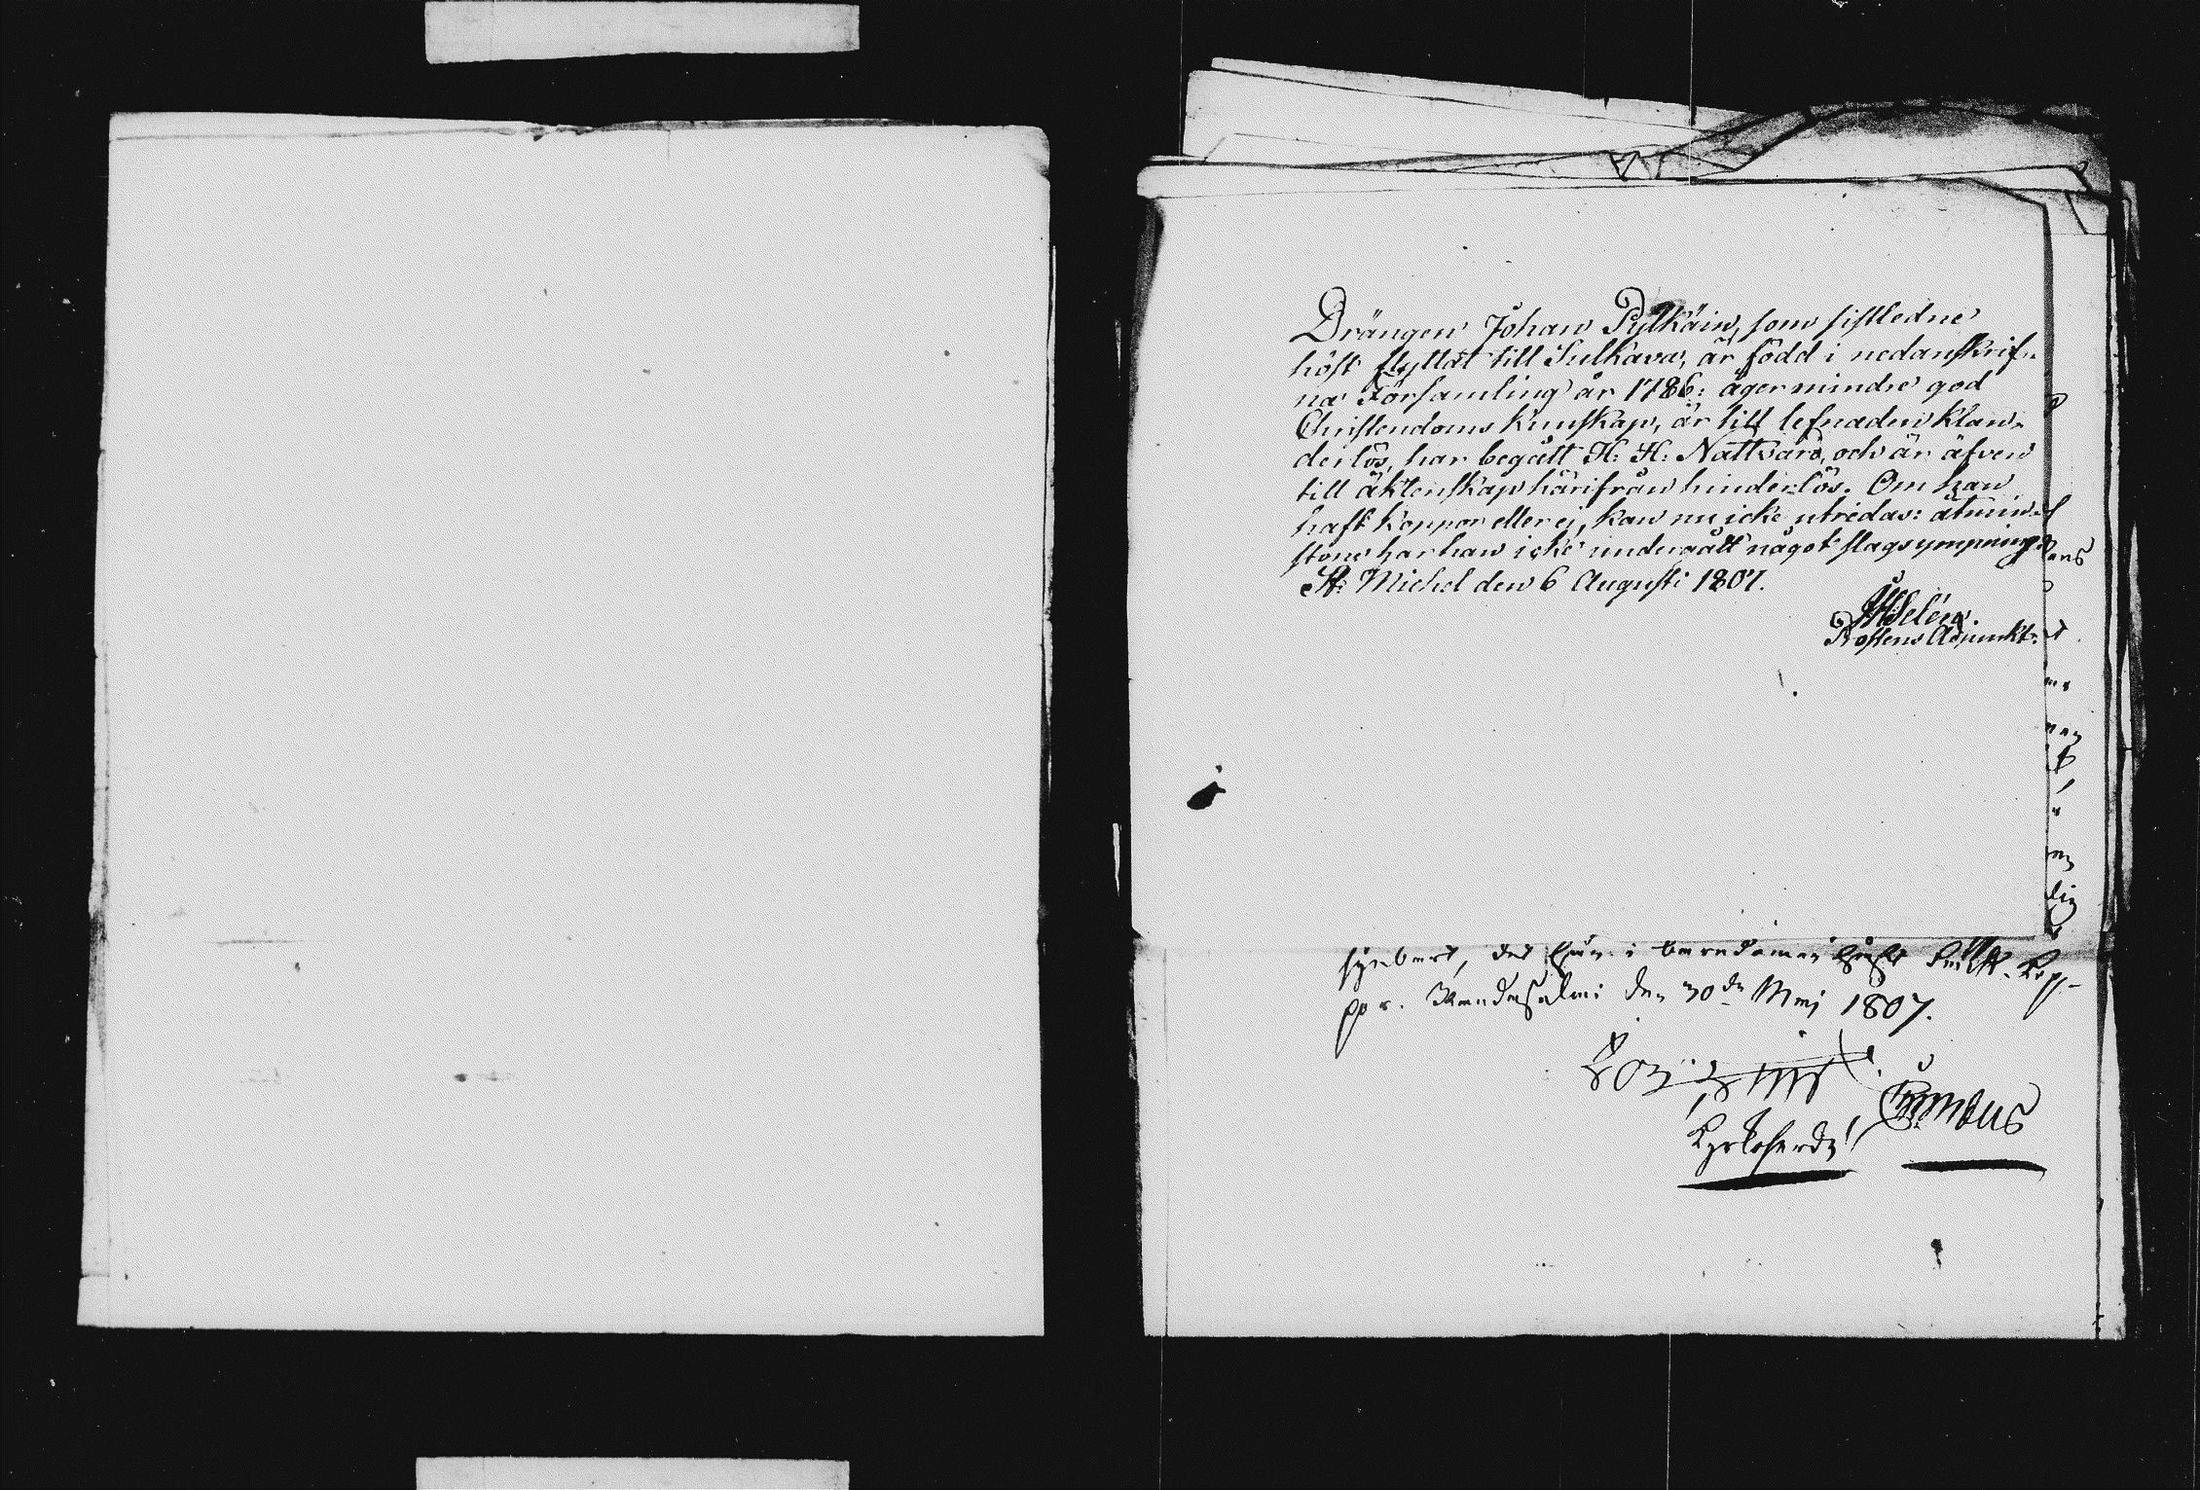 Drängen Johan Pylkäin, som sistledne
höst flyttat till Sulkava, är född i nedanskrif-
na Församling år 1786: äger mindre god
Christendoms kunskap, är till lefnaden klan-
derlös, har begått H: H: Nattvard, och är äfven
till äktenskap härifrån hinderlös. Om han
haft koppor eller ej, kan nu icke utredas: åtmin-
stone har han icke undergått något slags ympning.
St: Michel den 6 Augusti 1807.
Selén.
Prostens Adjunkt.
synbart, det hon i barndomen haft
ppor. Randasalmi den 30de Maj 1807.
Kyrkoherde